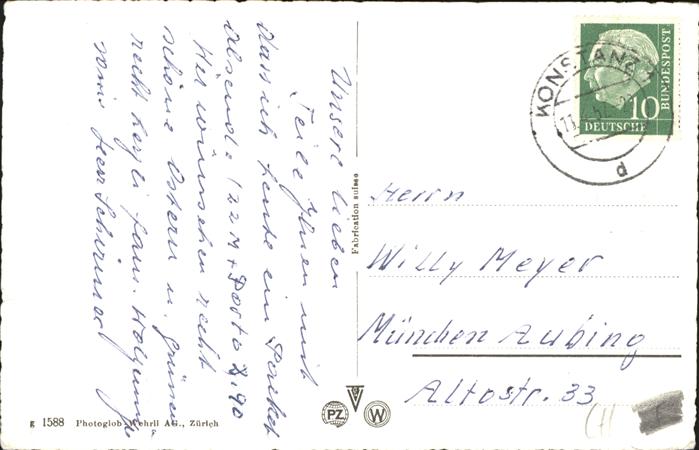 Unsere lieben
Teile Ihnen mit
dass ich heute ein Packet
absende 122 M + Porto 2,90
Wir wünschen recht
schöne Ostern u. grüssen
recht herzl. Fam.
sowie Herr
Fabrication suisse
KONSTANZ
d
10
DEUTSCHE
BUNDESPOST
Herrn
Willy Meyer
München Aubing
Altostr. 33
PZ
W
g 1588 Photoglob-Wehrli AG., Zürich